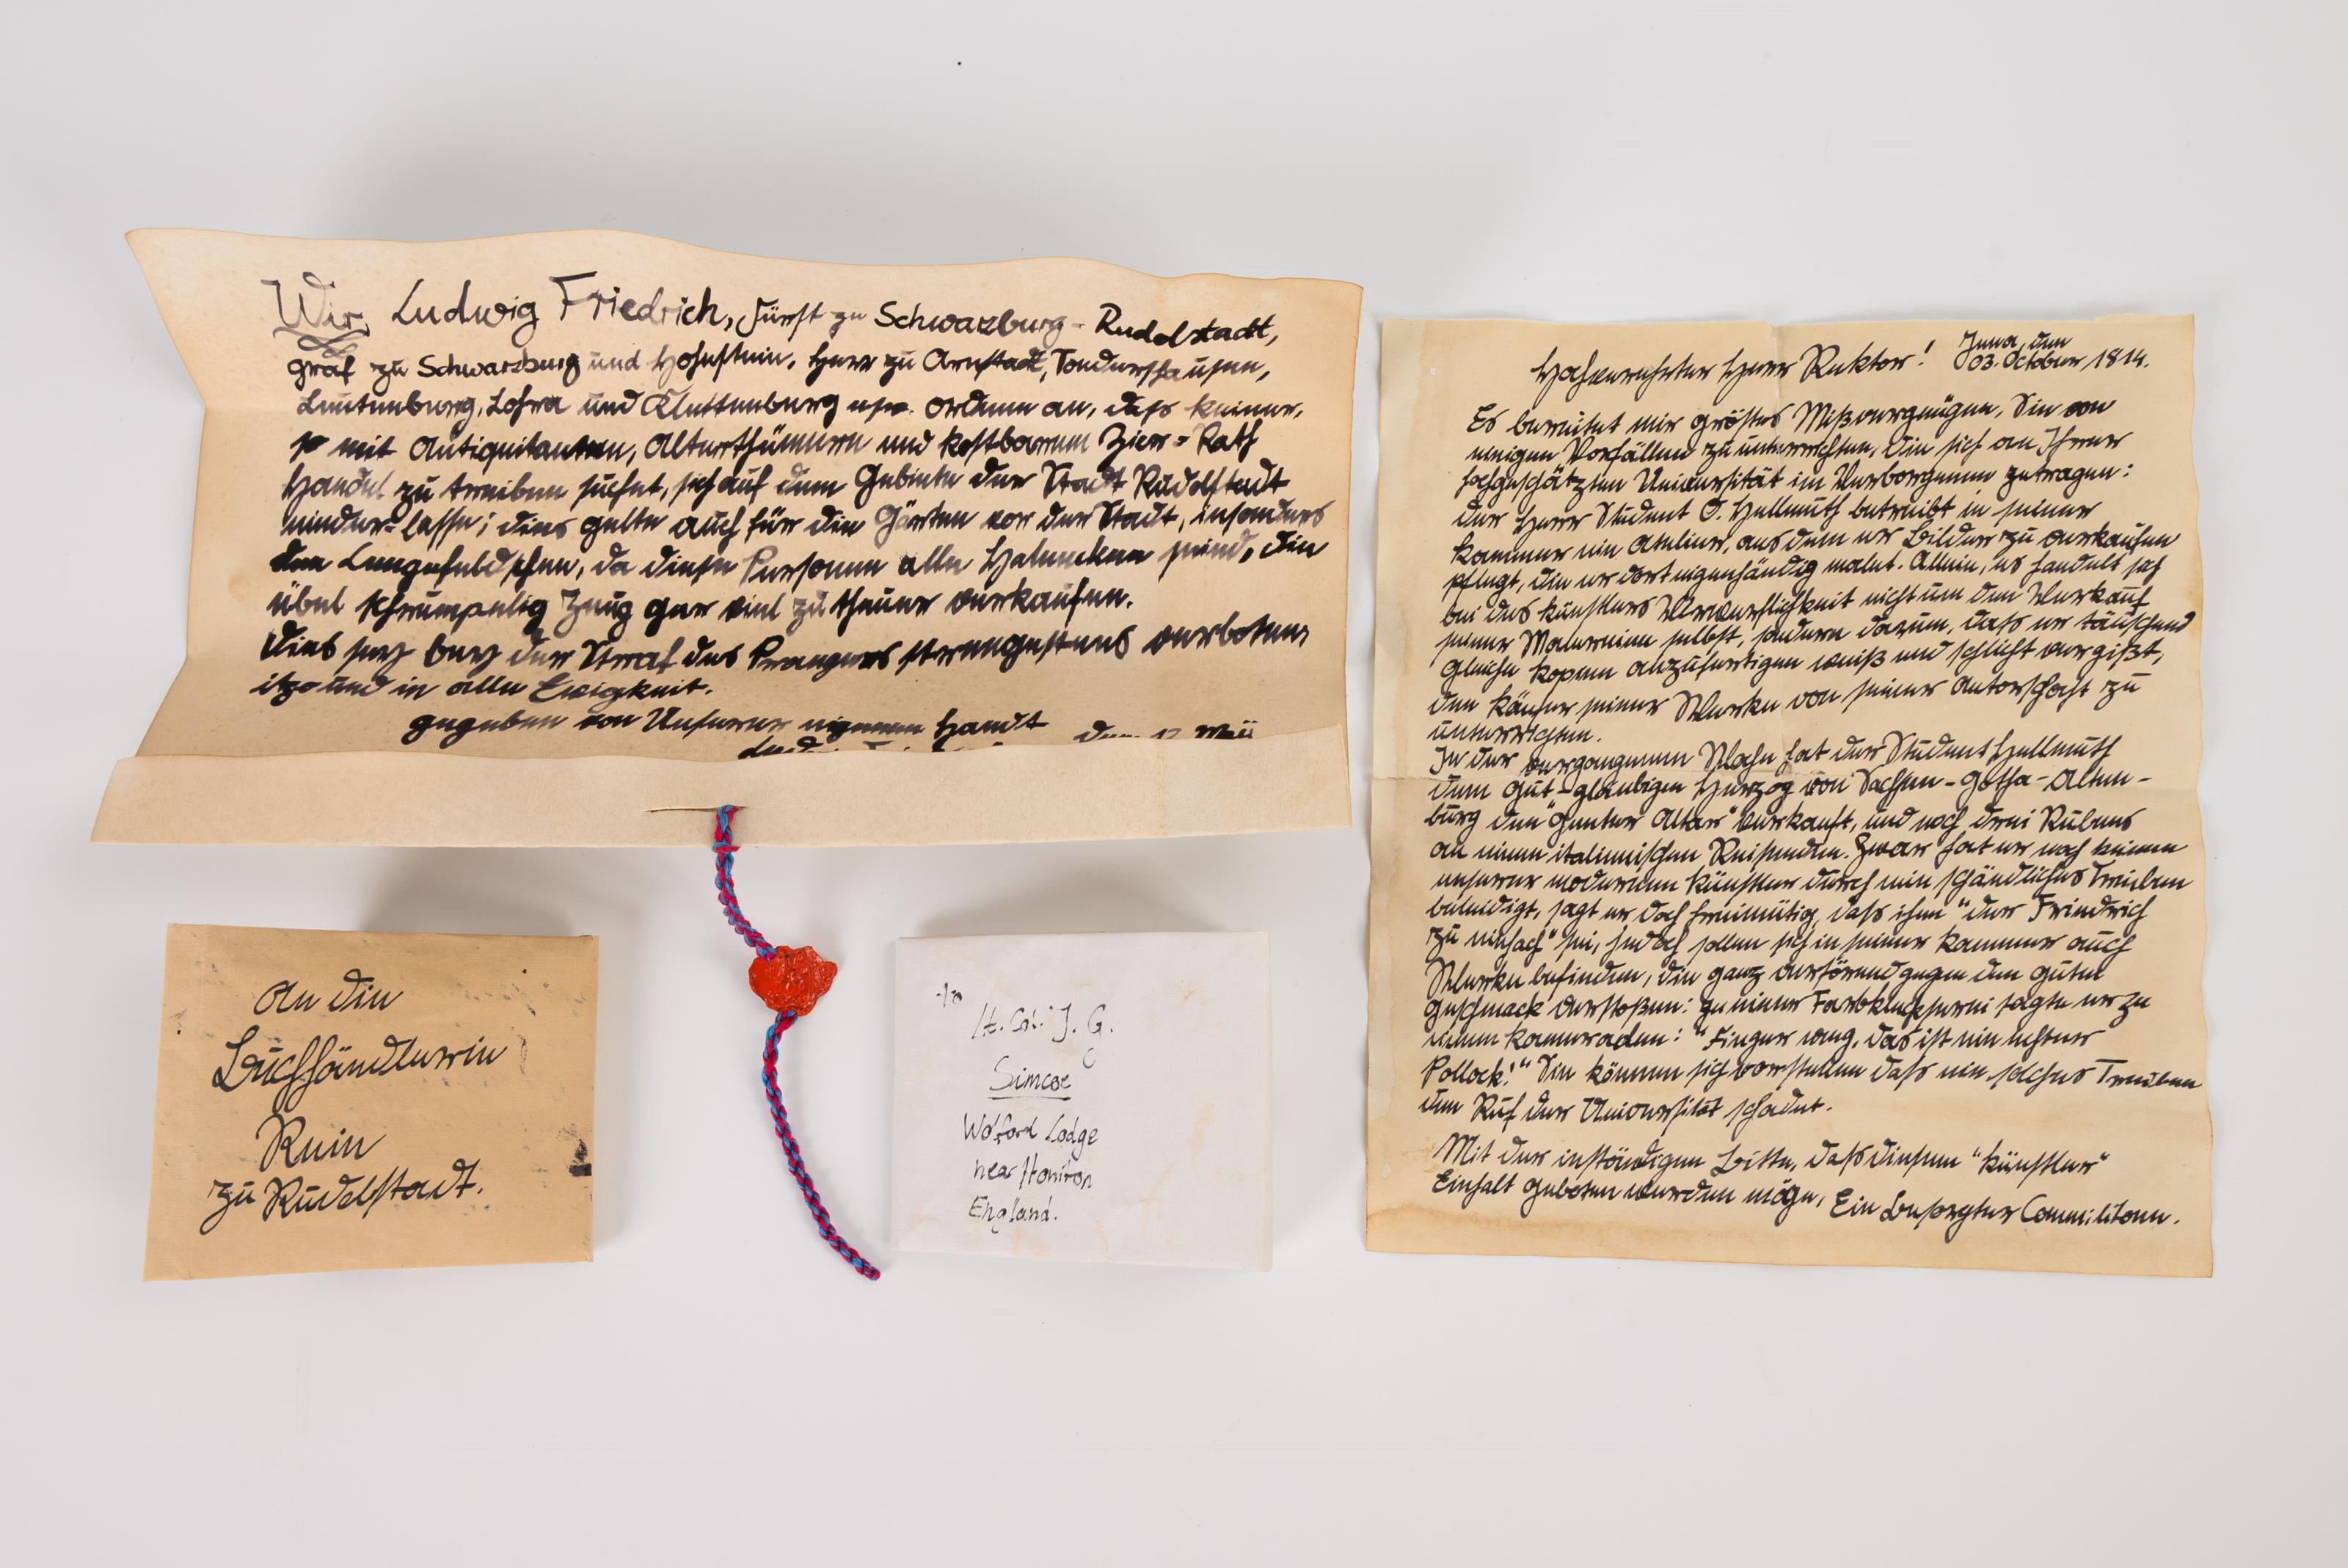 Wir Ludwig Friedrich, Fürst zu Schwarzburg-Rudolstadt,
Graf zu Schwarzburg und Hohnstein, Herr zu Arnstadt, Sondershausen,
Leutenburg, Lohra und Klettenburg usw. ordnen an, dass keiner,
so mit Antiquitaeten, Alterthümern und kostbarem Zier-Rath
Handel zu treiben suchet, sich auf dem Gebiete der Stadt Rudolstadt
nieder-lasse; dies gelte auch für die Gärten vor der Stadt, insonders
den Lengefeldschen, da diese Personen alle Halunken seind, die
übel schrumpelig Zeug gar viel zu theuer verkaufen.
Dies sey bey der Straf des Prangers strengestens verboten
itzo und in alle Ewigkeit.
gegeben von Unserer eigenen Handt
An die
Buchhändlerin
Rein
zu Rudolstadt.
To
Lt. Col. J. G.
Simcoe
Wolford Lodge
near Honiton
England.
Jena, den
03. October 1814.
Hochverehrter Herr Rektor!
Es bereitet mir größtes Mißvergnügen, Sie von
einigen Vorfällen zu unterrichten, die sich an Ihrer
hochgeschätzten Universität im Verborgenen zutragen:
der Herr Student O. Hellmuth betreibt in seiner
Kammer ein Atelier, aus dem er Bilder zu verkaufen
pflegt, die er dort eigenhändig malet. Allein, es handelt sich
bei des Künstlers Verwerflichkeit nicht um den Verkauf
seiner Malereien selbst, sondern darum, daß er täuschend
gleiche Kopien anzufertigen weiß und schlicht vergißt,
den Käufer seiner Werke von seiner Autorschaft zu
unterrichten.
In der vergangenen Woche hat der Student Hellmuth
dem gut-gläubigen Herzog von Sachsen-Gotha-Alten-
burg den "Genter Altar" verkauft, und noch drei Rubens
an einen italienischen Reisenden. Zwar hat er noch keinen
unserer modernen Künstler durch sein schändliches Treiben
beleidigt, sagt er doch freimütig, daß ihm "der Friedrich
zu einfach" sei, jedoch sollen sich in seiner Kammer auch
Werke befinden, die ganz verstörend gegen den guten
Geschmack verstoßen: zu einer Farbkleckserei sagte er zu
einem Kameraden: "Finger weg, das ist ein echter
Pollock!" Sie können sich vorstellen daß ein solches Treiben
dem Ruf der Universität schadet.
Mit der inständigen Bitte, daß diesem "Künstler"
Einhalt geboten werden möge, Ein besorgter Commilitone.